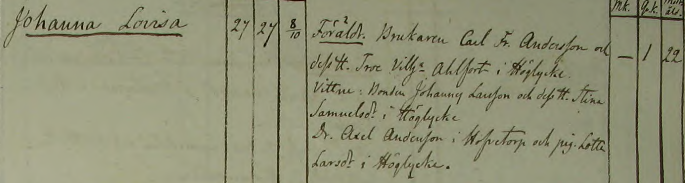 Mk. Qvk.
Johanna Lovisa 27 27 8/10 Föräldr. Brukaren Carl Fr. Andersson och — 1 22
dess H. Ahlfort i Höglycke.
Vittne: Bonden Johannes Larsson och dess H. Stina
Samuelsdr i Höglycke
Dr. Axel Andersson i Hofvetorp och pig. Lotta
Larsdr i Höglycke.